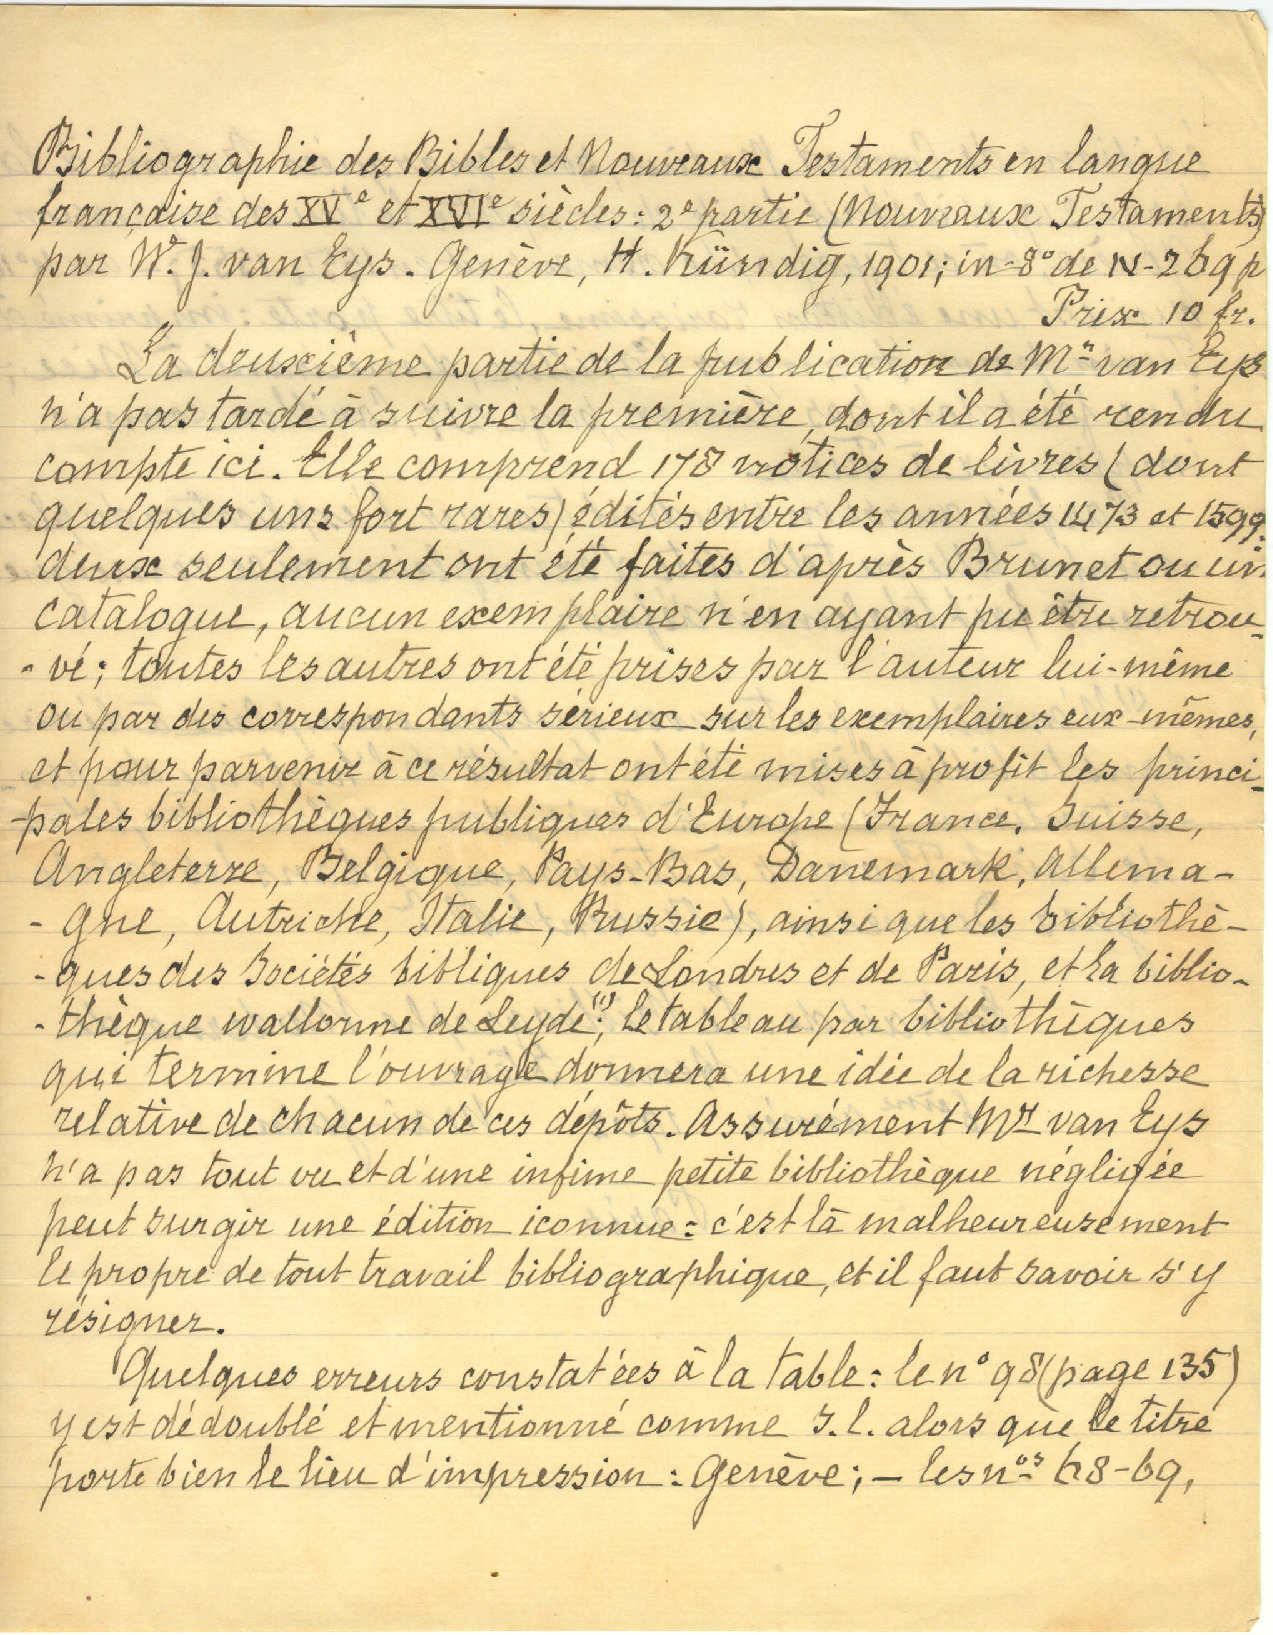 Bibliographie des Bibles et Nouveaux Testaments en langue
française des XVe et XVIe siècles : 2e partie (Nouveaux Testaments)
par W. J. van Eys. Genève, H. Kündig, 1901; in-8° de IV-269 p
Prix 10 fr.
La deuxième partie de la publication de Mr van Eys
n'a pas tardé à suivre la première, dont il a été rendu
compte ici. Elle comprend 178 notices de livres (dont
quelques uns fort rares) édités entre les années 1473 et 1599.
deux seulement ont été faites d'après Brunet ou un
catalogue, aucun exemplaire n'en ayant pu être retrou-
- vé; toutes les autres ont été prises par l'auteur lui-même
ou par des correspondants sérieux sur les exemplaires eux-mêmes,
et pour parvenir à ce résultat ont été mises à profit les princi-
-pales bibliothèques publiques d'Europe (France, Suisse,
Angleterre, Belgique, Pays-Bas, Danemark, Allema-
- gne, Autriche, Italie, Russie), ainsi que les bibliothè-
- ques des Sociétés bibliques de Londres et de Paris, et la biblio-
- thèque wallonne de Leyde(1); le tableau par bibliothèques
qui termine l'ouvrage donnera une idée de la richesse
relative de chacun de ces dépôts. Assurément Mr van Eys
n'a pas tout vu et d'une infime petite bibliothèque négligée
peut surgir une édition iconnue : c'est là malheureusement
le propre de tout travail bibliographique, et il faut savoir s'y
résigner.
Quelques erreurs constatées à la table : le n° 98 (page 135)
y est dédoublé et mentionné comme s.l. alors que le titre
porte bien le lieu d'impression : Genève; – les nos 68-69,